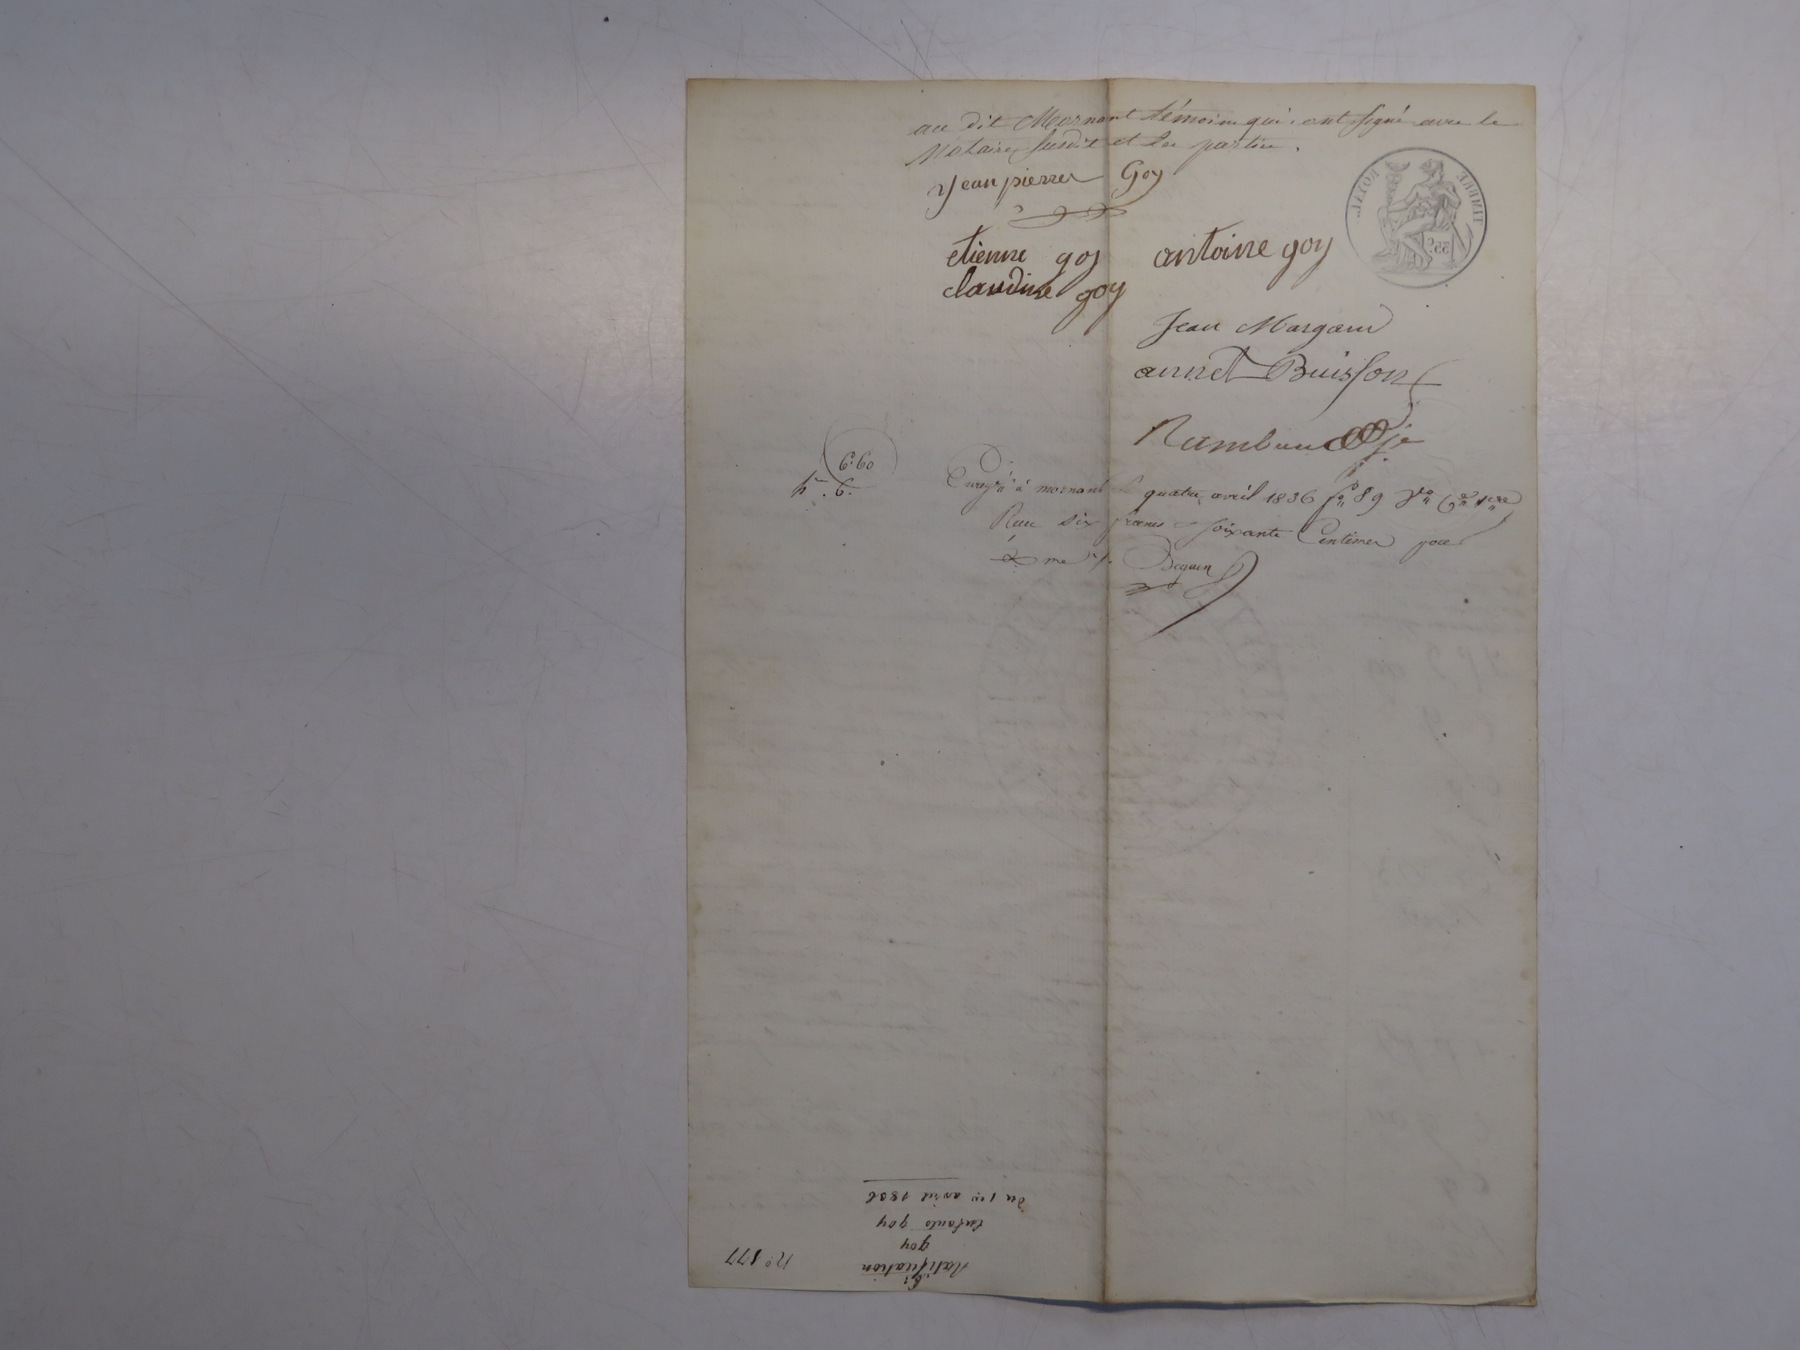 au dit Mornant témoins qui ont signé avec le
Notaire susdit et les parties.
Jean pierre Goy
etienne goy antoine goy
claudine goy
TIMBRE ROYAL
35c
Jean Margaud
annet Buisson
Rambaud
6.60
6.
Enregé à mornant le quatre avril 1836 fo 89 Vo
Reçu six francs soixante Centimes pour
Bequin
No 177
Ratification
goy
Enfants goy
du 1er avril 1836